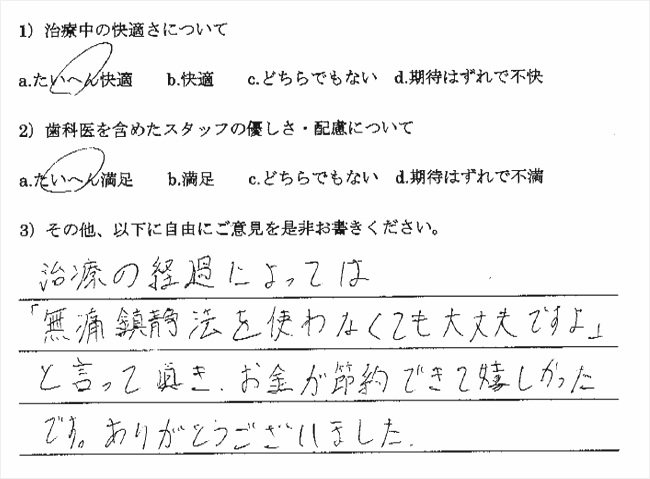 1）治療中の快適さについて
a.たいへん快適　b.快適　c.どちらでもない　d.期待はずれで不快
2）歯科医を含めたスタッフの優しさ・配慮について
a.たいへん満足　b.満足　c.どちらでもない　d.期待はずれで不満
3）その他、以下に自由にご意見を是非お書きください。
治療の経過によっては
「無痛鎮静法を使わなくても大丈夫ですよ」
と言って頂き、お金が節約できて嬉しかった
です。ありがとうございました.